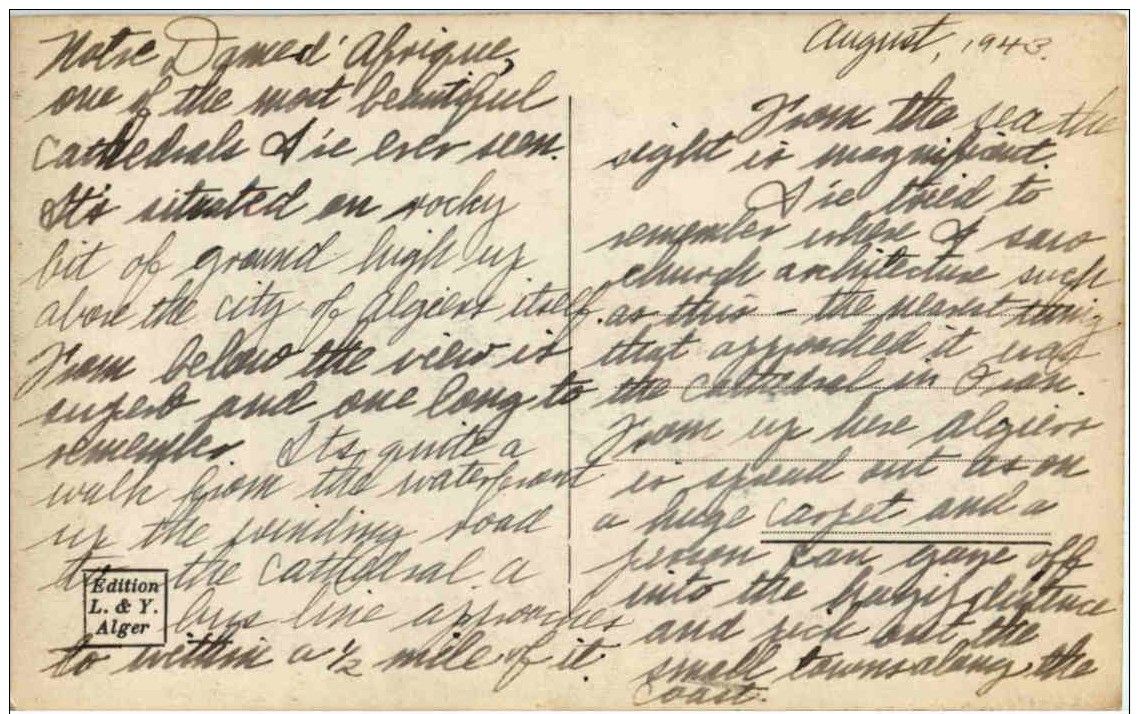 Notre Dame d'Afrique,
one of the most beautiful
Cathedrals I've ever seen.
It's situated on rocky
bit of ground high up
above the city of Algiers itself.
From below the view is
superb and one long to
remember. Its quite a
walk from the waterfront
up the winding road
to the Cathedral. a
bus line approaches
to within a 1/2 mile of it.
Edition
L. & Y.
Alger
August, 1943.
From the sea the
sight is magnificent.
I've tried to
remember where I saw
church architecture such
as this - the nearest thing
that approached it was
the Cathedral in Oran.
From up here Algiers
is spread out as on
a huge carpet and a
person can gaze off
into the hazy distance
and pick out the
small towns along the
coast.